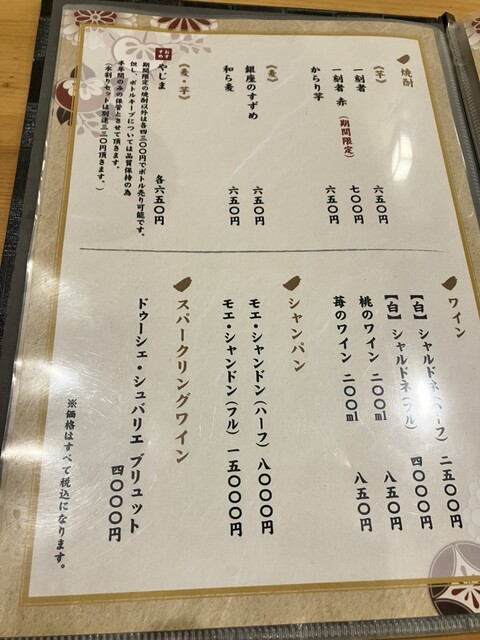 焼酎
（芋）
一刻者 六五〇円
一刻者 赤（期間限定） 七〇〇円
からり芋 六五〇円
（麦）
銀座のすずめ 六五〇円
和ら麦 六五〇円
（麦・芋）
おすすめ やじま 各六五〇円
期間限定の焼酎以外は各四三〇〇円でボトル売り可能です。
但し、ボトルキープについては品質保持の為
半年間のみの保管とさせて頂きます。
（水割りセットは別途三三〇円頂きます。）
ワイン
【白】シャルドネ（ハーフ） 二五〇〇円
【白】シャルドネ（フル） 四〇〇〇円
桃のワイン 二〇〇ml 八五〇円
苺のワイン 二〇〇ml 八五〇円
シャンパン
モエ・シャンドン（ハーフ） 八〇〇〇円
モエ・シャンドン（フル） 一五〇〇〇円
スパークリングワイン
ドゥーシェ・シュバリエ ブリュット 四〇〇〇円
※価格はすべて税込になります。